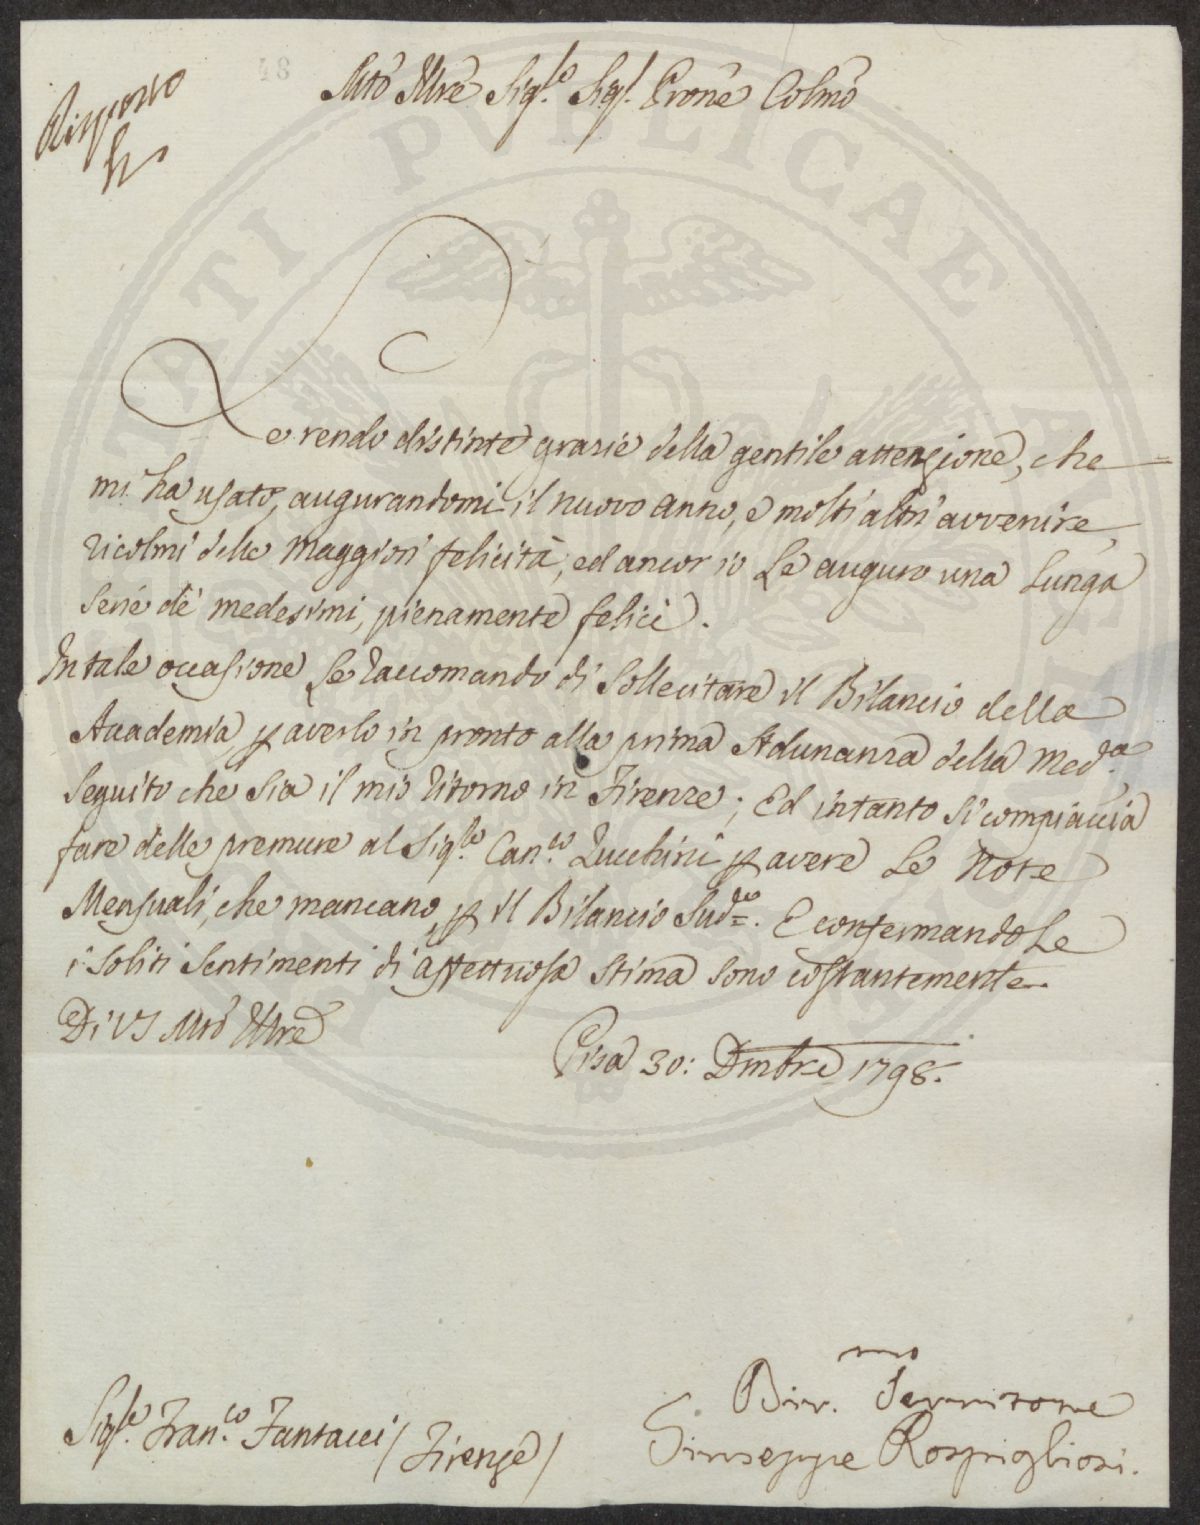 48
Risposto
li
Mtõ Illrẽ Sig.re Sig.r Prone Colmõ
Le rendo distinte grazie della gentile attenzione, che
mi ha usato, augurandomi il nuovo anno, e molti altri avvenire,
ricolmi delle maggiori felicità, ed ancor io Le auguro una lunga
serie de' medesimi, pienamente felici.
In tale occasione Le raccomando di sollecitare il Bilancio della
Accademia, p averlo in pronto alla prima Adunanza della Med.a
seguito che sia il mio ritorno in Firenze; Ed intanto si compiaccia
fare delle premure al Sig.re Can.co Zucchini p avere le Note
Mensuali, che mancano, p il Bilancio Sud.co. E confermandoLe
i soliti sentimenti di affettuosa stima sono costantemente
Di VS Mtõ Illrẽ
Pisa 30: Dmbre 1798.
Div.mo Servitore
Giuseppe Rospigliosi.
Sig.re Fran.co Fantacci / Firenze /
STATI PVBLICAE